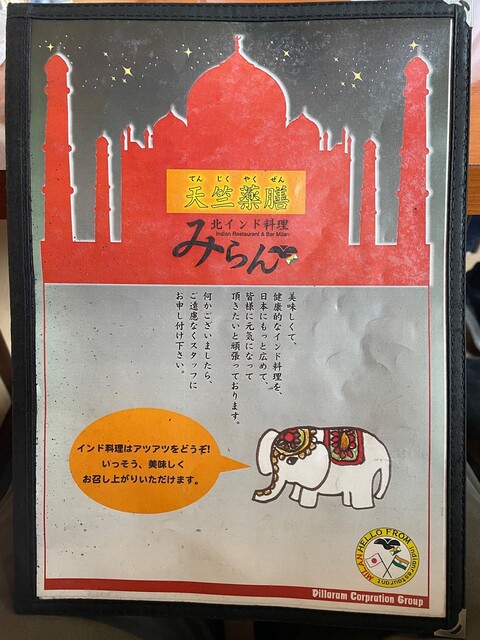 てんじくやくぜん
天竺薬膳
北インド料理
Indian Restaurant & Bar Milan
みらん
美味しくて、
健康的なインド料理を、
日本にもっと広めて、
皆様に元気になって
頂きたいと頑張っております。
何かございましたら、
ご遠慮なくスタッフに
お申し付け下さい。
インド料理はアツアツをどうぞ!
いっそう、美味しく
お召し上がりいただけます。
MILAN HELLO FROM
indianrestaurant
Dillaram Corpration Group